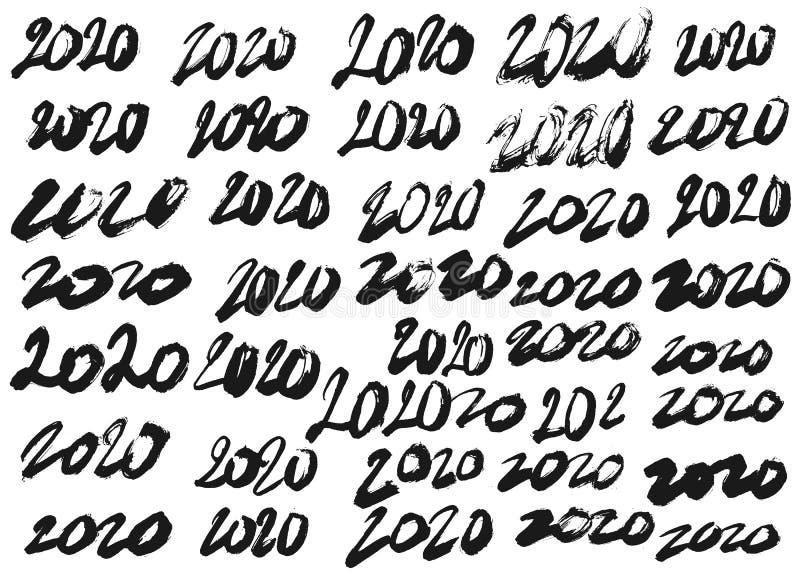 2020 2020 2020 2020 2020
2020 2020 2020 2020 2020
2020 2020 2020 2020 2020
2020 2020 2020 2020 2020
2020 2020 2020 2020 2020
202020 202 2020
2020 2020 2020 2020 2020
2020 2020 2020 2020 2020